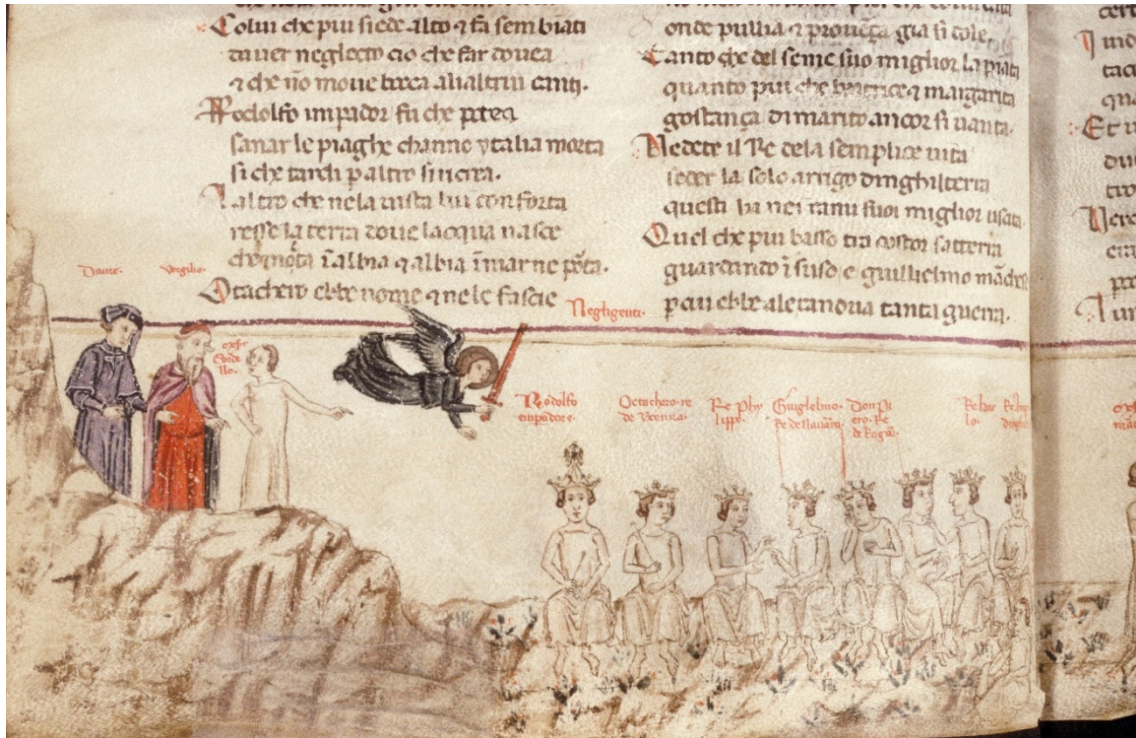 Colui che piu siede alto ⁊ fa sembiāti
dauer neglecto cio che far douea
⁊ che nō moue bocca alialtrui canti.
Rodolfo impador fu che potea
sanar le piaghe channo ytalia morta
si che tardi p altro si ricrea.
Laltro che nela uista lui conforta
resse la terra doue lacqua nasce
che molta ī albia ⁊ albia ī mar ne porta.
Otachero ebbe nome ⁊ nele fascie
onde pullia ⁊ proueça gia si dole.
Tanto che del seme suo miglior la pianta
quanto piu che beatrice ⁊ margarita
gostança di marito ancor si uanta.
Vedete il Re dela semplice uita
seder la solo arrigo dinghilterra
questi ha nei rami suoi miglior uscita.
Quel che piu basso tra costor satterra
guardando ī suso e guillielmo marchese
per cui ebbe alexandria tanta guerra.
Dante.
Virgilio.
Sorde
llo.
Negligenti.
Rodolfo
empadore.
Octachero re
de
Re Phy
lippo.
Guiglelmo.
Re de Nauarra
Don Pi
ero. Re
de Ragōa.
Re Kar
lo.